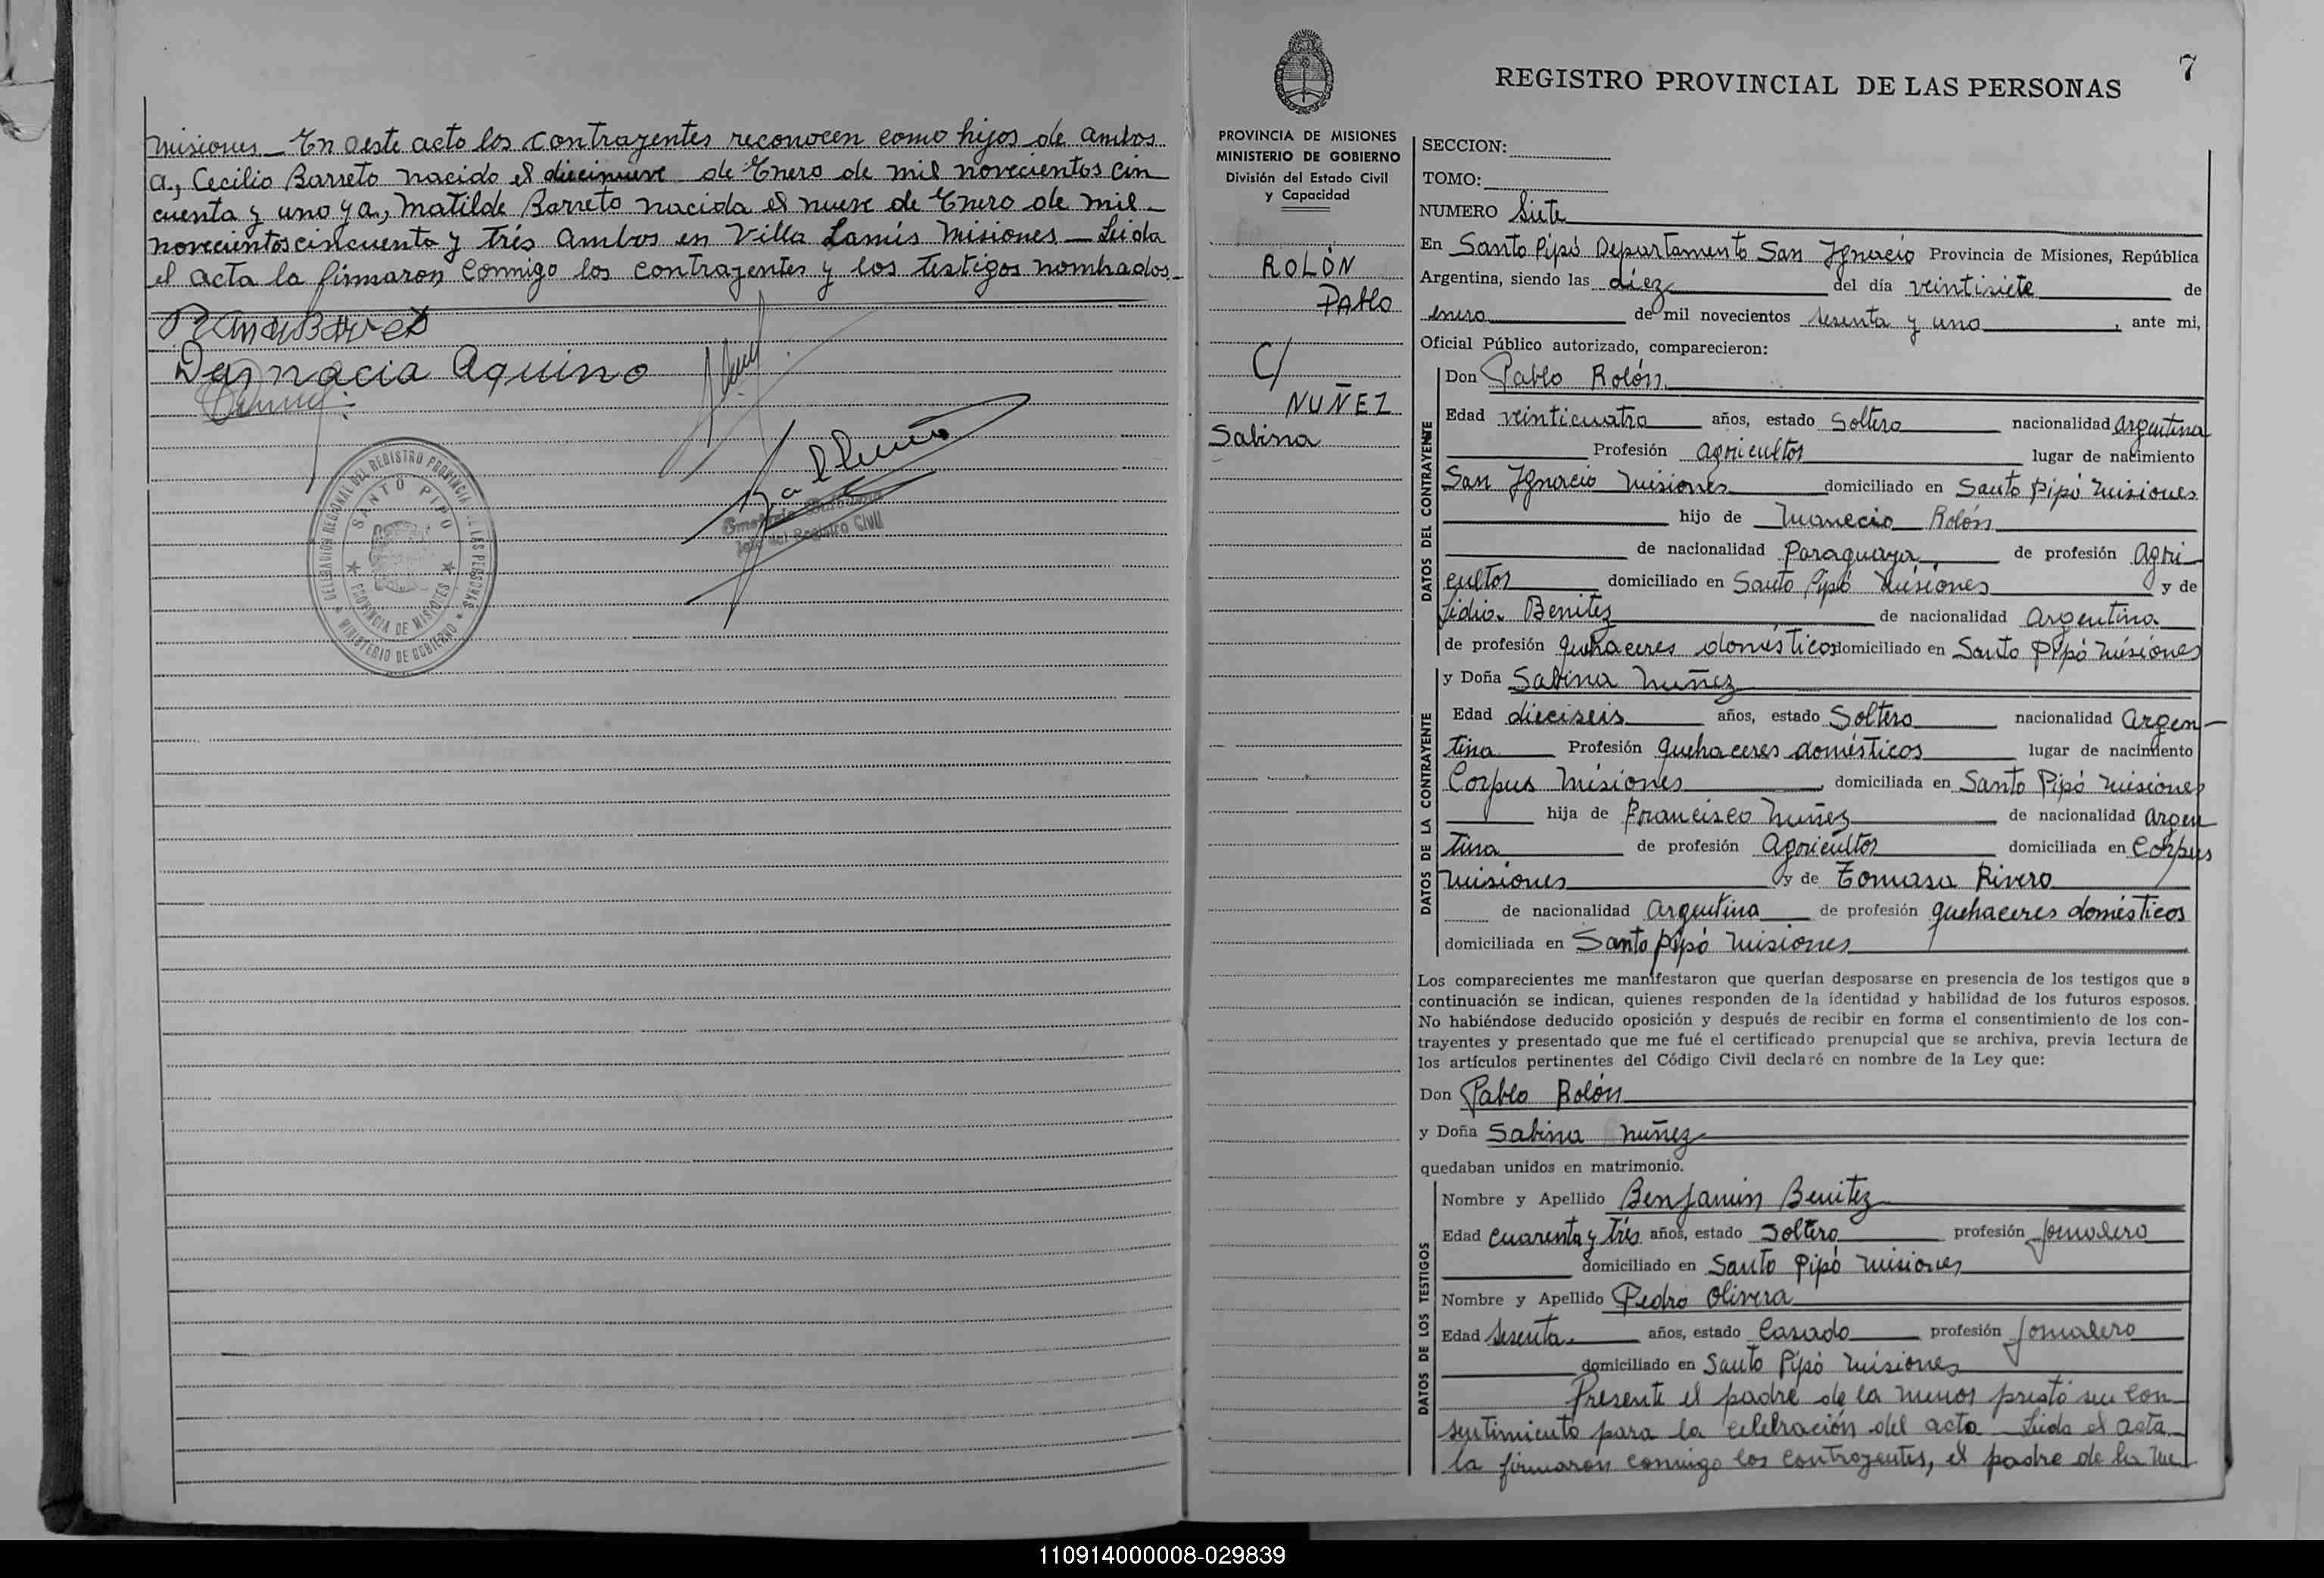 misiones. En este acto los contrayentes reconocen como hijos de ambos
a, Cecilio Barreto nacido el diecinueve de Enero de mil novecientos cin
cuenta y uno y a, Matilde Barreto nacida el nueve de Enero de mil
novecientos cincuenta y trés ambos en Villa Misiones — Leida
el acta la firmaron conmigo los contrayentes y los testigos nombrados.
Aquino
DELEGACION REGIONAL DEL REGISTRO PROVINCIAL DE LAS PERSONAS
SANTO PIPO
PROVINCIA DE MISIONES
MINISTERIO DE GOBIERNO
Jefe del Registro Civil
7
REGISTRO PROVINCIAL DE LAS PERSONAS
PROVINCIA DE MISIONES
MINISTERIO DE GOBIERNO
División del Estado Civil
y Capacidad
ROLÓN
Pablo
C/
NUÑEZ
Sabina
SECCION:
TOMO:
NUMERO Siete
En Santo Pipó Departamento San Ignacio Provincia de Misiones, República
Argentina, siendo las diez del día veintisiete de
enero de mil novecientos sesenta y uno, ante mi,
Oficial Público autorizado, comparecieron:
DATOS DEL CONTRAYENTE
Don Pablo Rolón
Edad veinticuatro años, estado Soltero nacionalidad argentina
Profesión agricultor lugar de nacimiento
San Ignacio Misiones domiciliado en Santo Pipó Misiones
hijo de Rolón
de nacionalidad Paraguaya de profesión Agri
cultor domiciliado en Santo Pipó Misiones y de
Benitez de nacionalidad Argentina
de profesión quehaceres domésticos domiciliado en Santo Pipó Misiones
DATOS DE LA CONTRAYENTE
y Doña Sabina Nuñez
Edad dieciseis años, estado Soltero nacionalidad Argen-
tina Profesión quehaceres domésticos lugar de nacimiento
Corpus Misiones, domiciliada en Santo Pipó Misiones
hija de Francisco Nuñez de nacionalidad Argen
tina de profesión Agricultor domiciliada en Corpus
Misiones y de Tomasa Rivero
de nacionalidad Argentina de profesión quehaceres domésticos
domiciliada en Santo Pipó Misiones
Los comparecientes me manifestaron que querían desposarse en presencia de los testigos que a
continuación se indican, quienes responden de la identidad y habilidad de los futuros esposos.
No habiéndose deducido oposición y después de recibir en forma el consentimiento de los con-
trayentes y presentado que me fué el certificado prenupcial que se archiva, previa lectura de
los artículos pertinentes del Código Civil declaré en nombre de la Ley que:
Don Pablo Rolón
y Doña Sabina Nuñez
quedaban unidos en matrimonio.
DATOS DE LOS TESTIGOS
Nombre y Apellido Benjamin Benitez
Edad cuarenta y trés años, estado Soltero profesión Jornalero
domiciliado en Santo Pipó Misiones
Nombre y Apellido Pedro Olivera
Edad Sesenta años, estado Casado profesión Jornalero
domiciliado en Santo Pipó Misiones
Presente el padre de la menor prestó su con
sentimiento para la celebración del acto — Leida el acta
la firmaron conmigo los contrayentes, el padre de la me
110914000008-029839